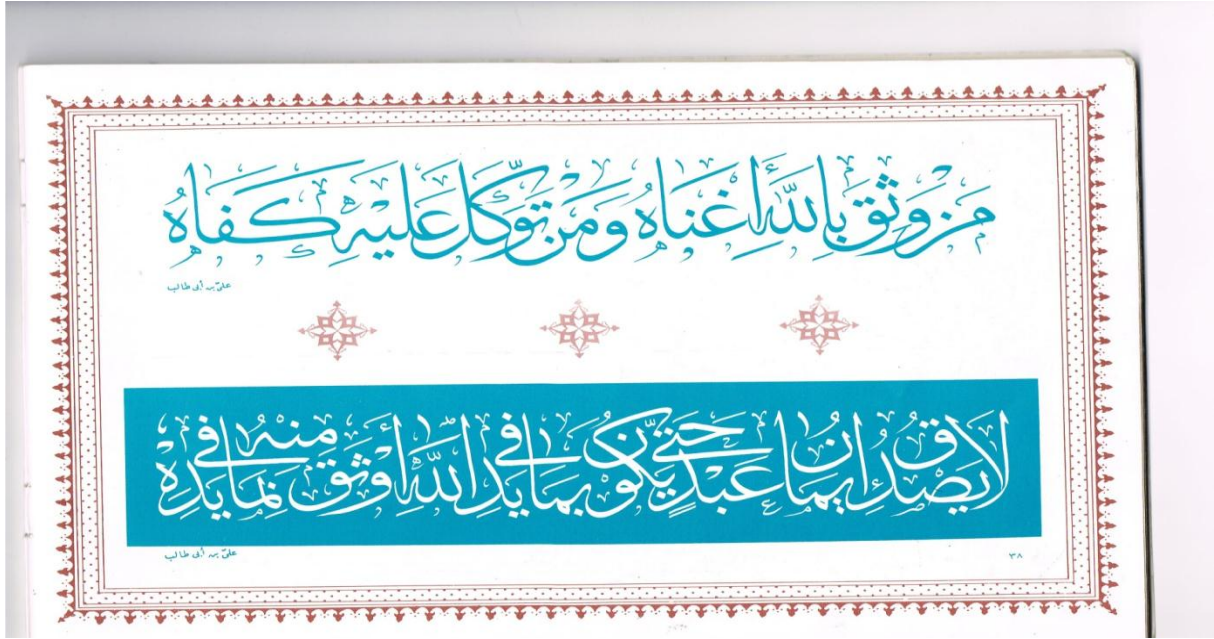 مَن وَثِقَ بِاللَّهِ أَغْنَاهُ وَمَن تَوَكَّلَ عَلَيْهِ كَفَاهُ
علىّ بن أبى طالب
لَا يَصْدُقُ إِيمَانُ عَبْدٍ حَتَّى يَكُونَ بِمَا فِي يَدِ اللَّهِ أَوْثَقَ مِنْهُ بِمَا فِي يَدِهِ
علىّ بن أبى طالب
٣٨